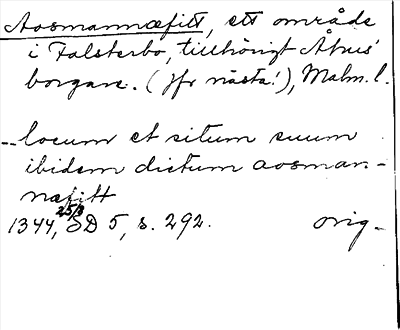 Aosmannæfitt, ett område
i Falsterbo, tillhörigt Åhus'
borgare. (Jfr nästa!), Malm. l.
-- locum et situm suum
ibidem dictum aosman-
næfitt
1344, 25/3 SD 5, s. 292. orig.